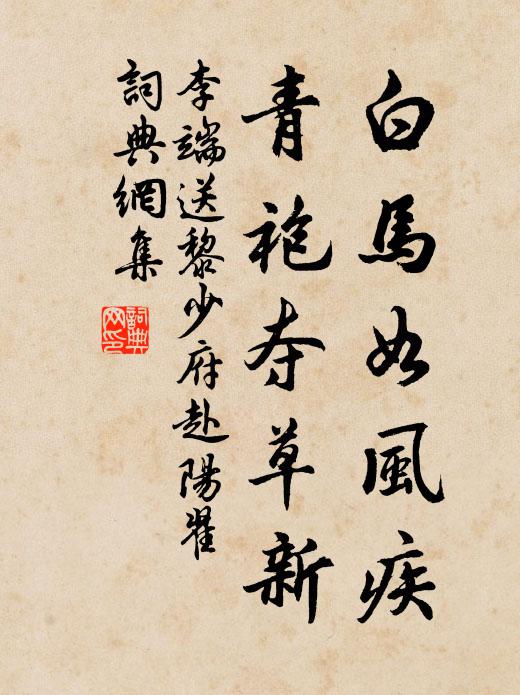 白馬如風疾
青袍夺草新
李端送黎少府赴陽翟
詞典網集
詞典网印